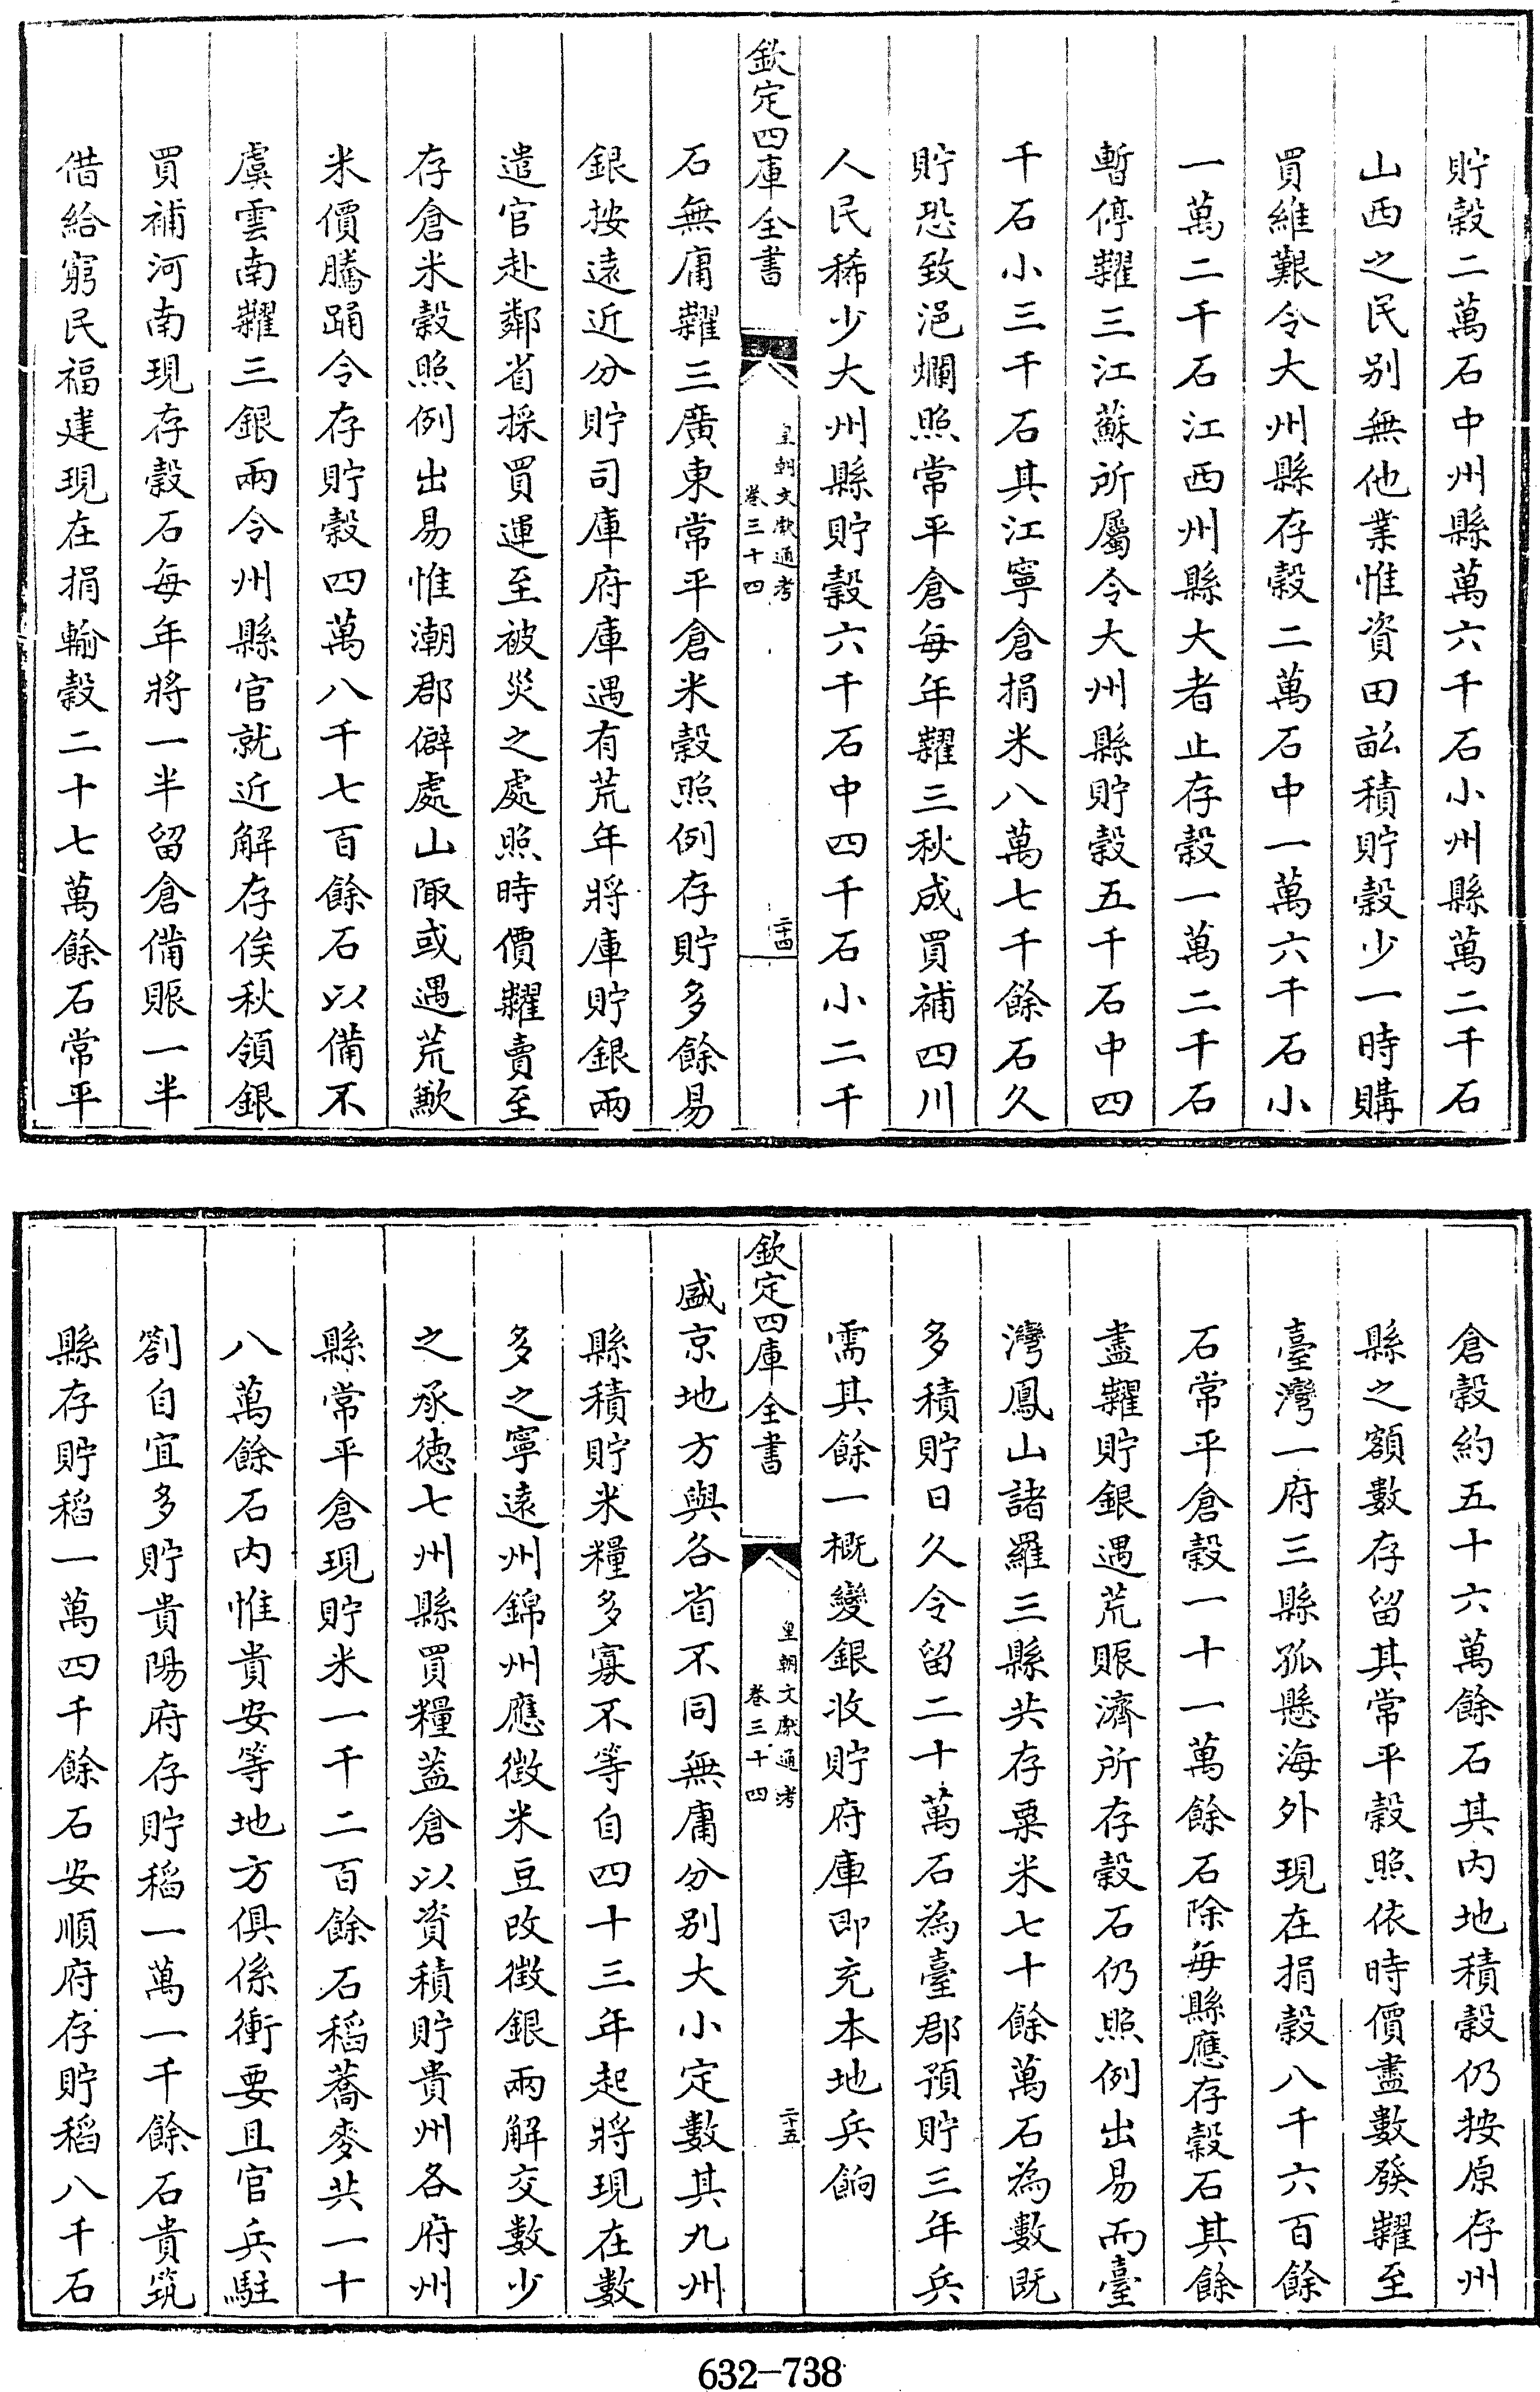 貯穀二萬石中州縣萬六千石小州縣萬二千石
山西之民别無他業惟資田畝積貯穀少一時購
買維艱令大州縣存穀二萬石中一萬六千石小
一萬二千石江西州縣大者止存穀一萬二千石
暫停糶三江蘇所屬令大州縣貯穀五千石中四
千石小三千石其江寧倉捐米八萬七千餘石久
貯恐致浥爛照常平倉每年糶三秋成買補四川
人民稀少大州縣貯穀六千石中四千石小二千
欽定四庫全書
皇朝文獻通考
卷三十四
二十四
石無庸糶三廣東常平倉米穀照例存貯多餘易
銀按遠近分貯司庫府庫遇有荒年將庫貯銀兩
遣官赴鄰省採買運至被災之處照時價糶賣至
存倉米穀照例出易惟潮郡僻處山陬或遇荒歉
米價騰踊令存貯穀四萬八千七百餘石以備不
虞雲南糶三銀兩令州縣官就近解存俟秋領銀
買補河南現存穀石每年將一半留倉備賑一半
借給窮民福建現在捐輸穀二十七萬餘石常平
倉穀約五十六萬餘石其内地積穀仍按原存州
縣之額數存留其常平穀照依時價盡數發糶至
臺灣一府三縣孤懸海外現在捐穀八千六百餘
石常平倉穀一十一萬餘石除每縣應存穀石其餘
盡糶貯銀遇荒賑濟所存穀石仍照例出易而臺
灣鳳山諸羅三縣共存粟米七十餘萬石為數既
多積貯日久令留二十萬石為臺郡預貯三年兵
需其餘一概變銀收貯府庫即充本地兵餉
欽定四庫全書
皇朝文獻通考
卷三十四
二十五
盛京地方與各省不同無庸分别大小定數其九州
縣積貯米糧多寡不等自四十三年起將現在數
多之寧遠州錦州應徵米豆改徵銀兩解交數少
之承德七州縣買糧蓋倉以資積貯貴州各府州
縣常平倉現貯米一千二百餘石稻蕎麥共一十
八萬餘石内惟貴安等地方俱係衝要且官兵駐
劄自宜多貯貴陽府存貯稻一萬一千餘石貴筑
縣存貯稻一萬四千餘石安順府存貯稻八千石
632-738